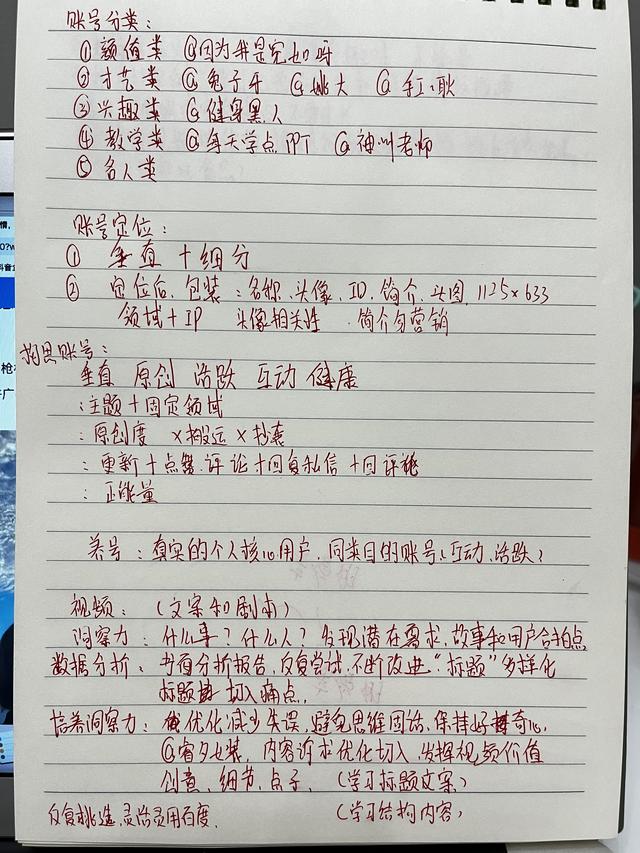 账号分类：
① 颜值类 @因为我是宠的呀
② 才艺类 @兔子牙 @姚大 @手工耿
③ 兴趣类 @健身黑人
④ 教学类 @每天学点PPT @神叫老师
⑤ 名人类
账号定位：
① 垂直 + 细分
② 定位后，包装：名称、头像、ID、简介、头图 1125×633
领域+IP 头像相关性 简介勿营销
构思账号：
垂直 原创 活跃 互动 健康
：主题+固定领域
：原创度 ×搬运 ×抄袭
：更新+点赞、评论+回复私信+回评
：正能量
养号：真实的个人核心用户，同类目的账号（互动、活跃）
视频：（文案和剧本）
洞察力：什么事？什么人？发现潜在需求，故事和用户合拍点
数据分析、书面分析报告，反复尝试，不断改进，"标题"多样化
标题 切入痛点。
培养洞察力：优化减少失误，避免思维固话，保持好奇心，
内容诉求优化切入，发挥视频价值
创意、细节、点子、（学习标题文案）
反复挑选，灵活灵用百度。 （学习结构内容）